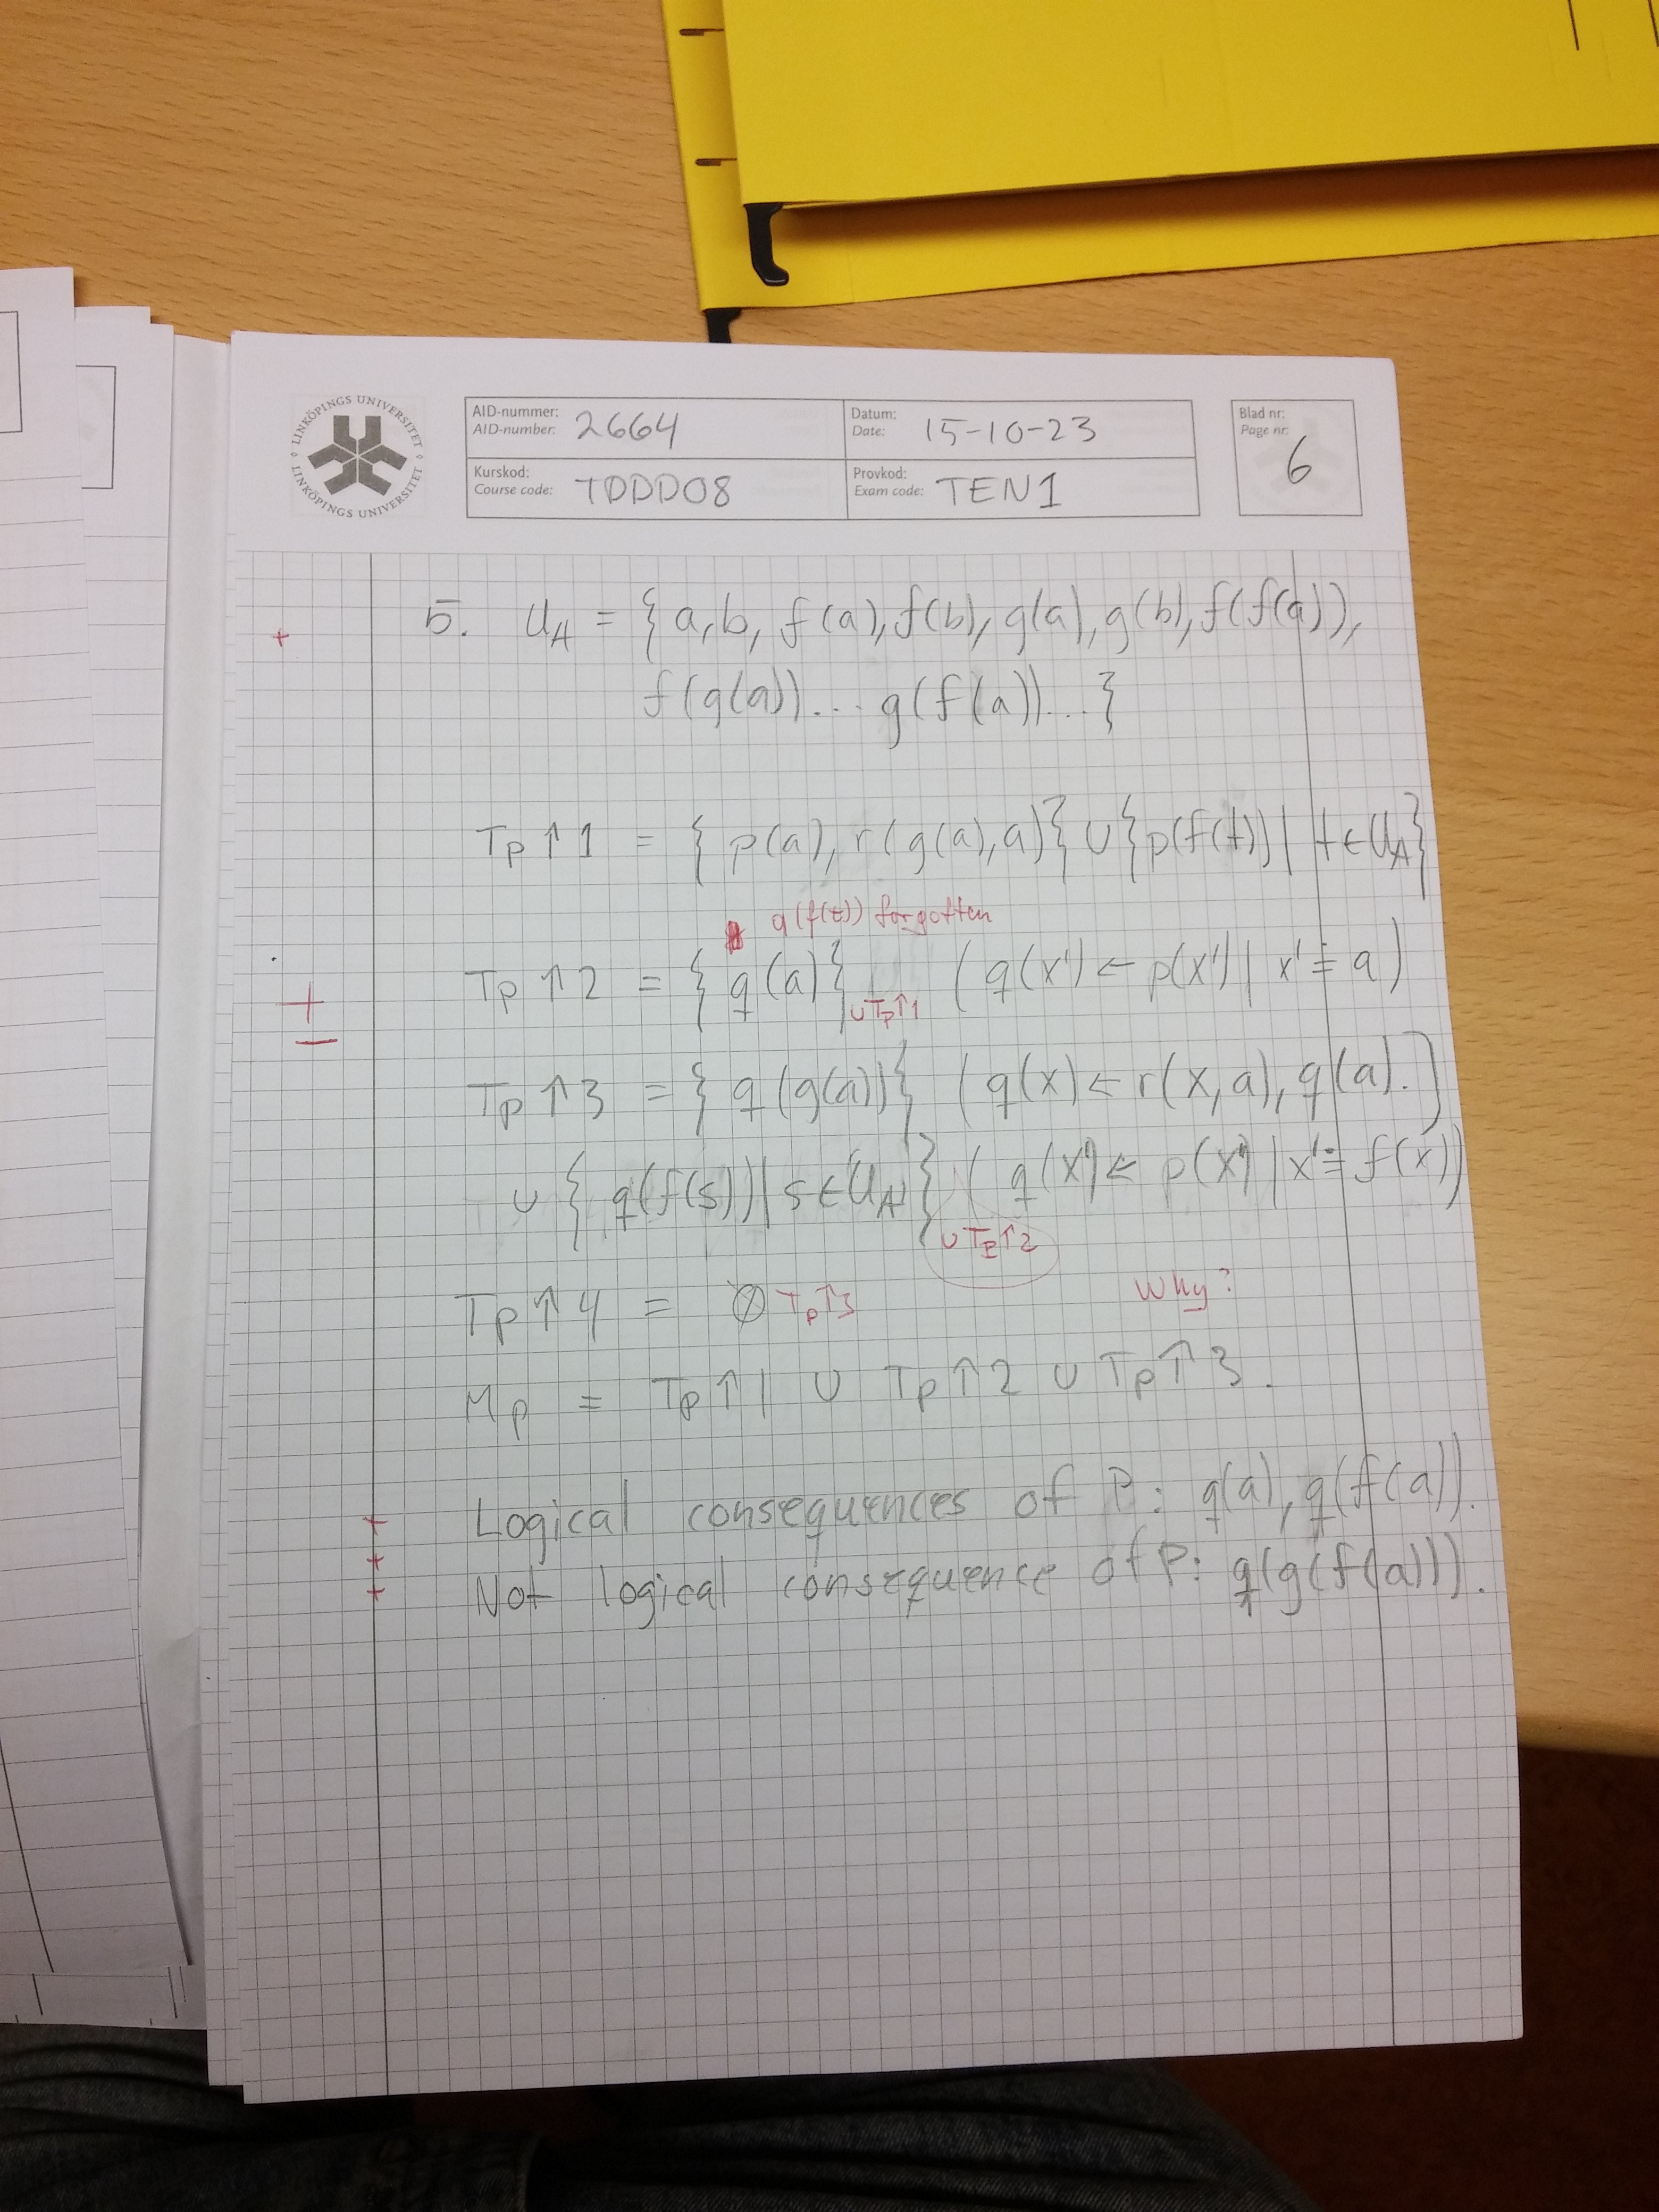 LINKÖPINGS UNIVERSITET
LINKÖPINGS UNIVERSITET
AID-nummer: 2664
AID-number:
Datum: 15-10-23
Date:
Blad nr:
Page nr:
6
Kurskod: TDDD08
Course code:
Provkod: TEN1
Exam code:
+
5. U_A = { a, b, f(a), f(b), g(a), g(b), f(f(a)),
f(g(a))... g(f(a))...}
Tp↑1 = { p(a), r(g(a), a)} ∪ {p(f(t)) | t ∈ U_A}
q(f(t)) forgotten
Tp↑2 = { q(a)} ∪Tp↑1 ( q(x') ← p(x') | x' = a )
+
Tp↑3 = { q(g(a))} ( q(x) ← r(x, a), q(a). )
∪ { q(f(s)) | s ∈ U_A } ( q(x') ← p(x') | x' = f(x))
∪Tp↑2
Why?
Tp↑4 = ∅ Tp↑3
Mp = Tp↑1 ∪ Tp↑2 ∪ Tp↑3.
+ Logical consequences of P: q(a), q(f(a)).
+
+ Not logical consequence of P: q(g(f(a))).